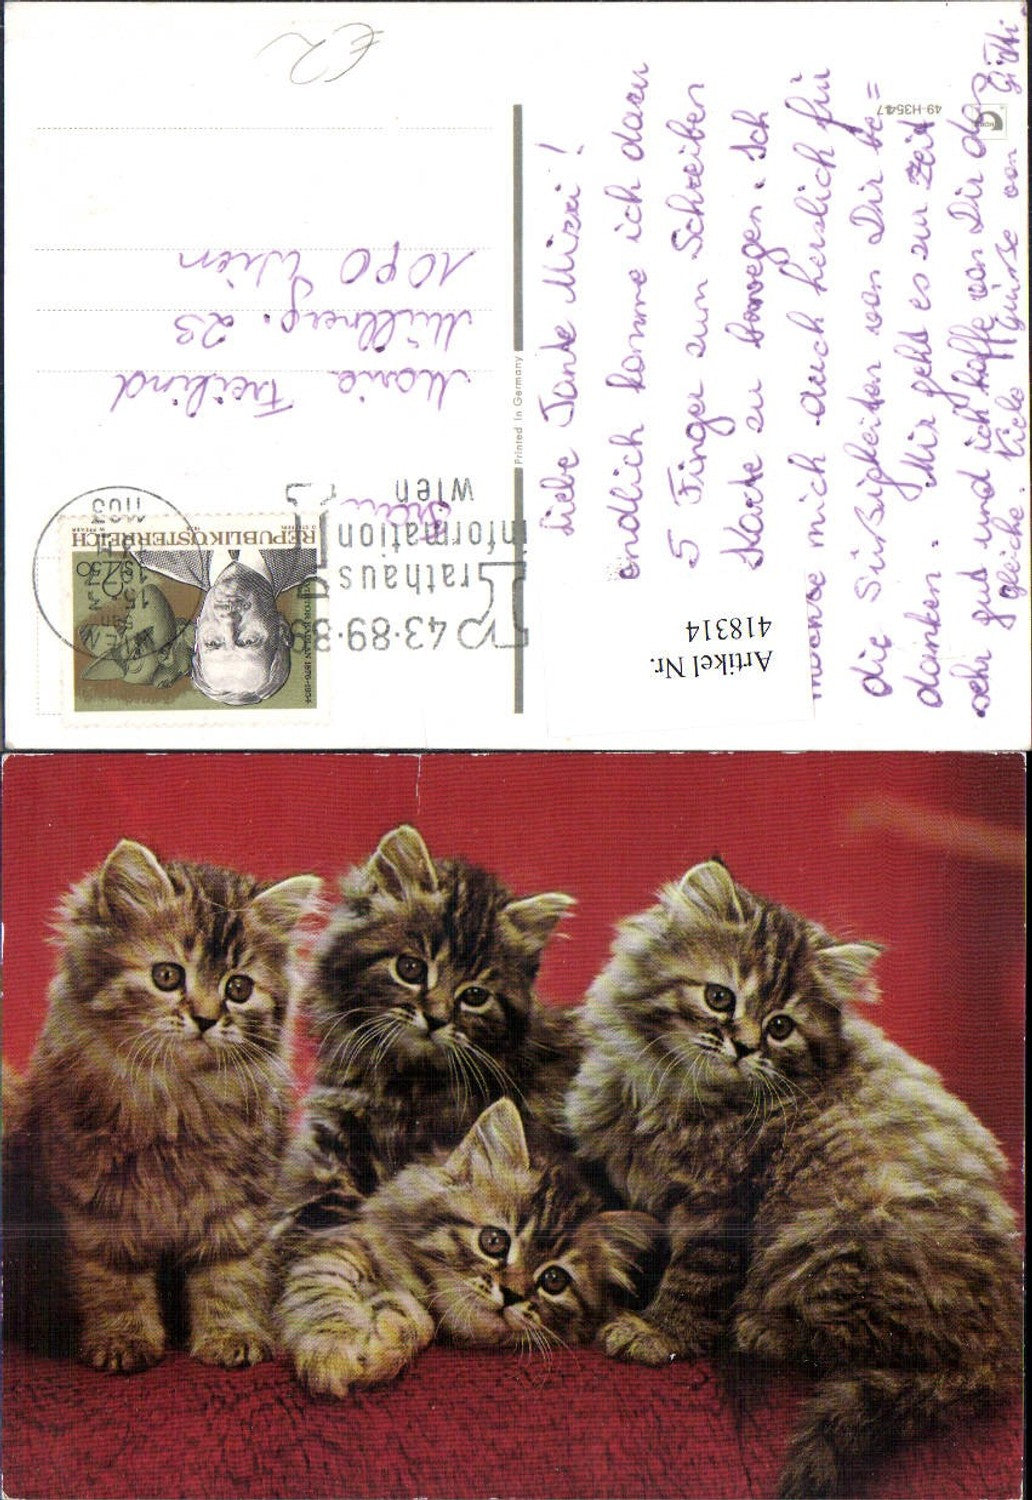 Liebe Tante Mizzi!
endlich komme ich dazu
5 Finger zum Schreiben
Karte zu bewegen. Ich
möchte mich auch herzlich für
die Süßigkeiten von Dir be=
danken. Mir geht es zur Zeit
sehr gut und ich hoffe von Dir das
gleiche. Viele Grüsse von Gitti
Frau
Maria Freilind
Müllnerg. 23
1090 Wien
€2
Printed in Germany
49-H3547
Artikel Nr.
418314
REPUBLIK ÖSTERREICH
1876-1954
S 1.50
43·89·89
rathaus
information
wien
1103